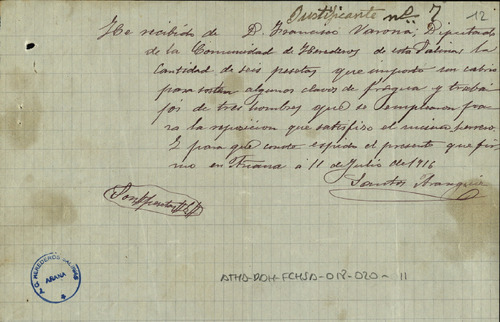 Justificante nº 7
12
He recibido de D. Francisco Varona, Diputado
de la Comunidad de Herederos de esta Salinas la
Cantidad de seis pesetas que importo un cabrio
para sosten algunos clavos de fragua y traba-
jos de tres hombres que se emplearon pa
ra la reposicion que satisfizo el mismo
Y para que conste espido el presente que fir
mo en Añana á 11 de Julio de 1916
Santos
Son pesetas
C. G. HEREDEROS SALINAS
AÑANA
ATHA-DAH-FCHSA-018-020-11